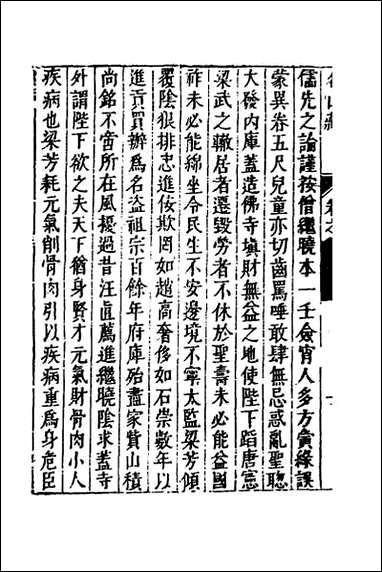 名山藏
儒先之論謹按僧繼曉本一壬僉宵人多方夤緣誤
蒙異卷五尺兒童亦切齒罵唾敢肆無忌惑亂聖聰
大發内庫蓋造佛寺填財無益之地使陛下蹈唐憲
梁武之轍居者遷毀勞者不休於聖壽未必能益國
祚未必能綿坐令民生不安邊境不寧太監梁芳傾
覆陰狠排忠進佞欺罔如趙高奢侈如石崇數年以
進貢買辦爲名盗祖宗百餘年府庫殆盡家貲山積
尚銘不啻所在風擾過昔汪直薦進繼曉陰求蓋寺
外謂陛下欲之夫天下猶身賢才元氣財骨肉小人
疾病也梁芳耗元氣削骨肉引以疾病重爲身危臣